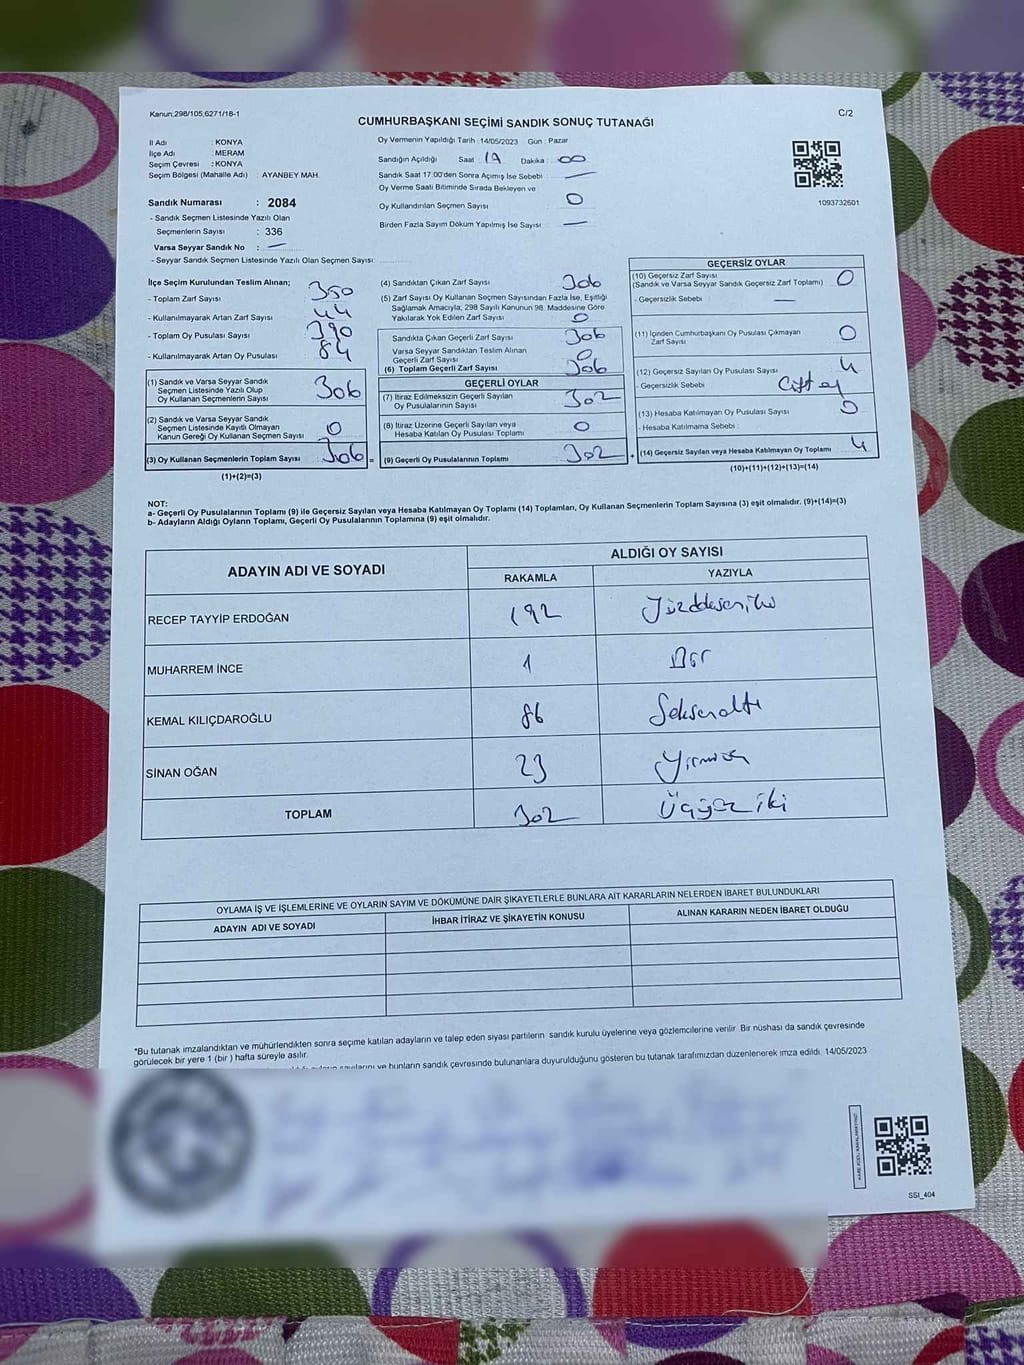 Kanun:298/105;6271/18-1
C/2
CUMHURBAŞKANI SEÇİMİ SANDIK SONUÇ TUTANAĞI
İl Adı : KONYA
İlçe Adı : MERAM
Seçim Çevresi : KONYA
Seçim Bölgesi (Mahalle Adı) : AYANBEY MAH.
Sandık Numarası : 2084
- Sandık Seçmen Listesinde Yazılı Olan
Seçmenlerin Sayısı : 336
Varsa Seyyar Sandık No : —
- Seyyar Sandık Seçmen Listesinde Yazılı Olan Seçmen Sayısı:
Oy Vermenin Yapıldığı Tarih : 14/05/2023 Gün : Pazar
Sandığın Açıldığı Saat Dakika : 00
Sandık Saat 17:00'den Sonra Açımış İse Sebebi : —
Oy Verme Saati Bitiminde Sırada Bekleyen ve
Oy Kullandırılan Seçmen Sayısı : 0
Birden Fazla Sayım Döküm Yapılmış İse Sayısı : —
1093732601
İlçe Seçim Kurulundan Teslim Alınan;
- Toplam Zarf Sayısı : 350
- Kullanılmayarak Artan Zarf Sayısı : 44
- Toplam Oy Pusulası Sayısı : 390
- Kullanılmayarak Artan Oy Pusulası : 84
(1) Sandık ve Varsa Seyyar Sandık
Seçmen Listesinde Yazılı Olup
Oy Kullanan Seçmenlerin Sayısı 306
(2) Sandık ve Varsa Seyyar Sandık
Seçmen Listesinde Kayıtlı Olmayan
Kanun Gereği Oy Kullanan Seçmen Sayısı 0
(3) Oy Kullanan Seçmenlerin Toplam Sayısı 306 =
(1)+(2)=(3)
(4) Sandıktan Çıkan Zarf Sayısı 306
(5) Zarf Sayısı Oy Kullanan Seçmen Sayısından Fazla İse, Eşitliği
Sağlamak Amacıyla; 298 Sayılı Kanunun 98. Maddesine Göre
Yakılarak Yok Edilen Zarf Sayısı 0
Sandıkta Çıkan Geçerli Zarf Sayısı 306
Varsa Seyyar Sandıktan Teslim Alınan
Geçerli Zarf Sayısı 0
(6) Toplam Geçerli Zarf Sayısı 306
GEÇERLİ OYLAR
(7) İtiraz Edilmeksizin Geçerli Sayılan
Oy Pusulalarının Sayısı 302
(8) İtiraz Üzerine Geçerli Sayılan veya
Hesaba Katılan Oy Pusulası Toplamı 0
(9) Geçerli Oy Pusulalarının Toplamı 302 +
GEÇERSİZ OYLAR
(10) Geçersiz Zarf Sayısı
(Sandık ve Varsa Seyyar Sandık Geçersiz Zarf Toplamı) 0
- Geçersizlik Sebebi —
(11) İçinden Cumhurbaşkanı Oy Pusulası Çıkmayan
Zarf Sayısı 0
(12) Geçersiz Sayılan Oy Pusulası Sayısı 4
- Geçersizlik Sebebi Çift oy
(13) Hesaba Katılmayan Oy Pusulası Sayısı 0
- Hesaba Katılmama Sebebi :
(14) Geçersiz Sayılan veya Hesaba Katılmayan Oy Toplamı 4
(10)+(11)+(12)+(13)=(14)
NOT:
a- Geçerli Oy Pusulalarının Toplamı (9) ile Geçersiz Sayılan veya Hesaba Katılmayan Oy Toplamı (14) Toplamları, Oy Kullanan Seçmenlerin Toplam Sayısına (3) eşit olmalıdır. (9)+(14)=(3)
b- Adayların Aldığı Oyların Toplamı, Geçerli Oy Pusulalarının Toplamına (9) eşit olmalıdır.
ADAYIN ADI VE SOYADI
ALDIĞI OY SAYISI
RAKAMLA YAZIYLA
RECEP TAYYİP ERDOĞAN 192
MUHARREM İNCE 1 Bir
KEMAL KILIÇDAROĞLU 86 Seksenaltı
SİNAN OĞAN 23
TOPLAM 302 Üçyüziki
OYLAMA İŞ VE İŞLEMLERİNE VE OYLARIN SAYIM VE DÖKÜMÜNE DAİR ŞİKAYETLERLE BUNLARA AİT KARARLARIN NELERDEN İBARET BULUNDUKLARI
ADAYIN ADI VE SOYADI İHBAR İTİRAZ VE ŞİKAYETİN KONUSU ALINAN KARARIN NEDEN İBARET OLDUĞU
*Bu tutanak imzalandıktan ve mühürlendikten sonra seçime katılan adayların ve talep eden siyasi partilerin sandık kurulu üyelerine veya gözlemcilerine verilir. Bir nüshası da sandık çevresinde
görülecek bir yere 1 (bir ) hafta süreyle asılır.
ve bunların sandık çevresinde bulunanlara duyurulduğunu gösteren bu tutanak tarafımızdan düzenlenerek imza edildi. 14/05/2023
SSI_404